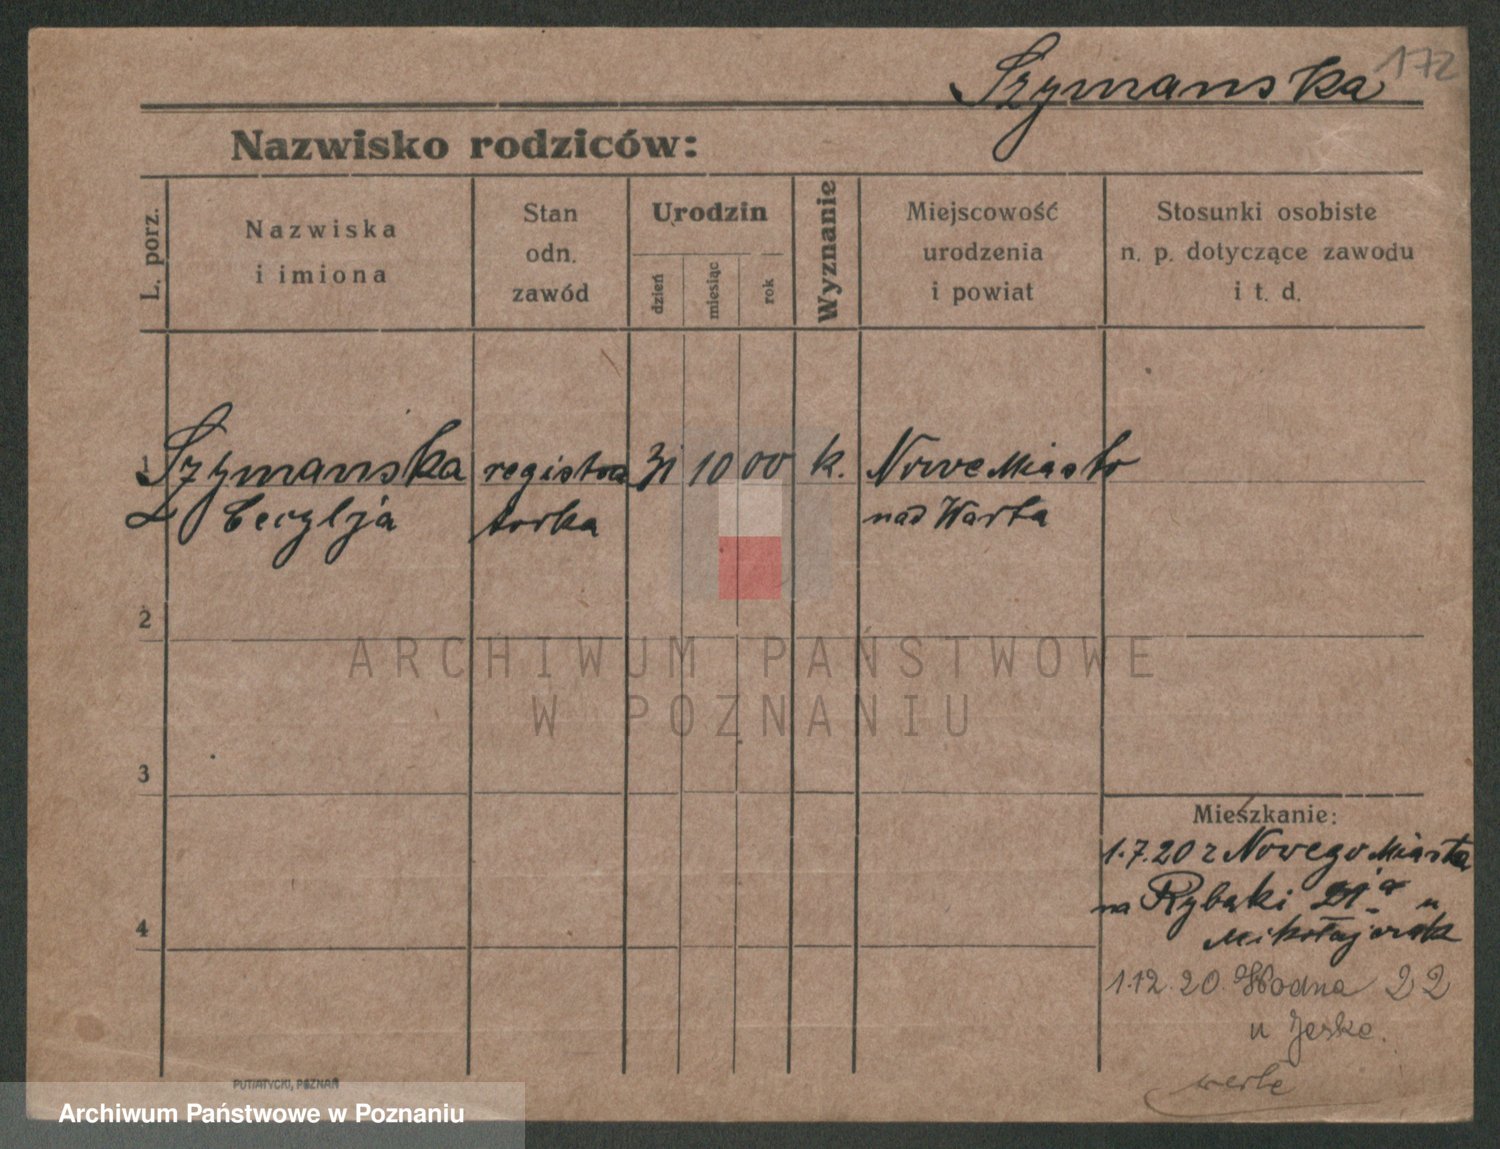 Szymanska 172
Nazwisko rodziców:
L. porz.
Nazwiska
i imiona
Stan
odn.
zawód
Urodzin
dzień
miesiąc
rok
Wyznanie
Miejscowość
urodzenia
i powiat
Stosunki osobiste
n. p. dotyczące zawodu
i t. d.
1 Szymanska registra 31 10 00 k. Nowe Miasto
Cecylja torka nad Warta
2
3
4
Mieszkanie:
1.7.20 z Nowego Miasta
na Rybaki u
Mikołajczak
1.12.20. Wodna 22
u Jeske.
PUTIATYCKI, POZNAŃ
ARCHIWUM PAŃSTWOWE
W POZNANIU
Archiwum Państwowe w Poznaniu